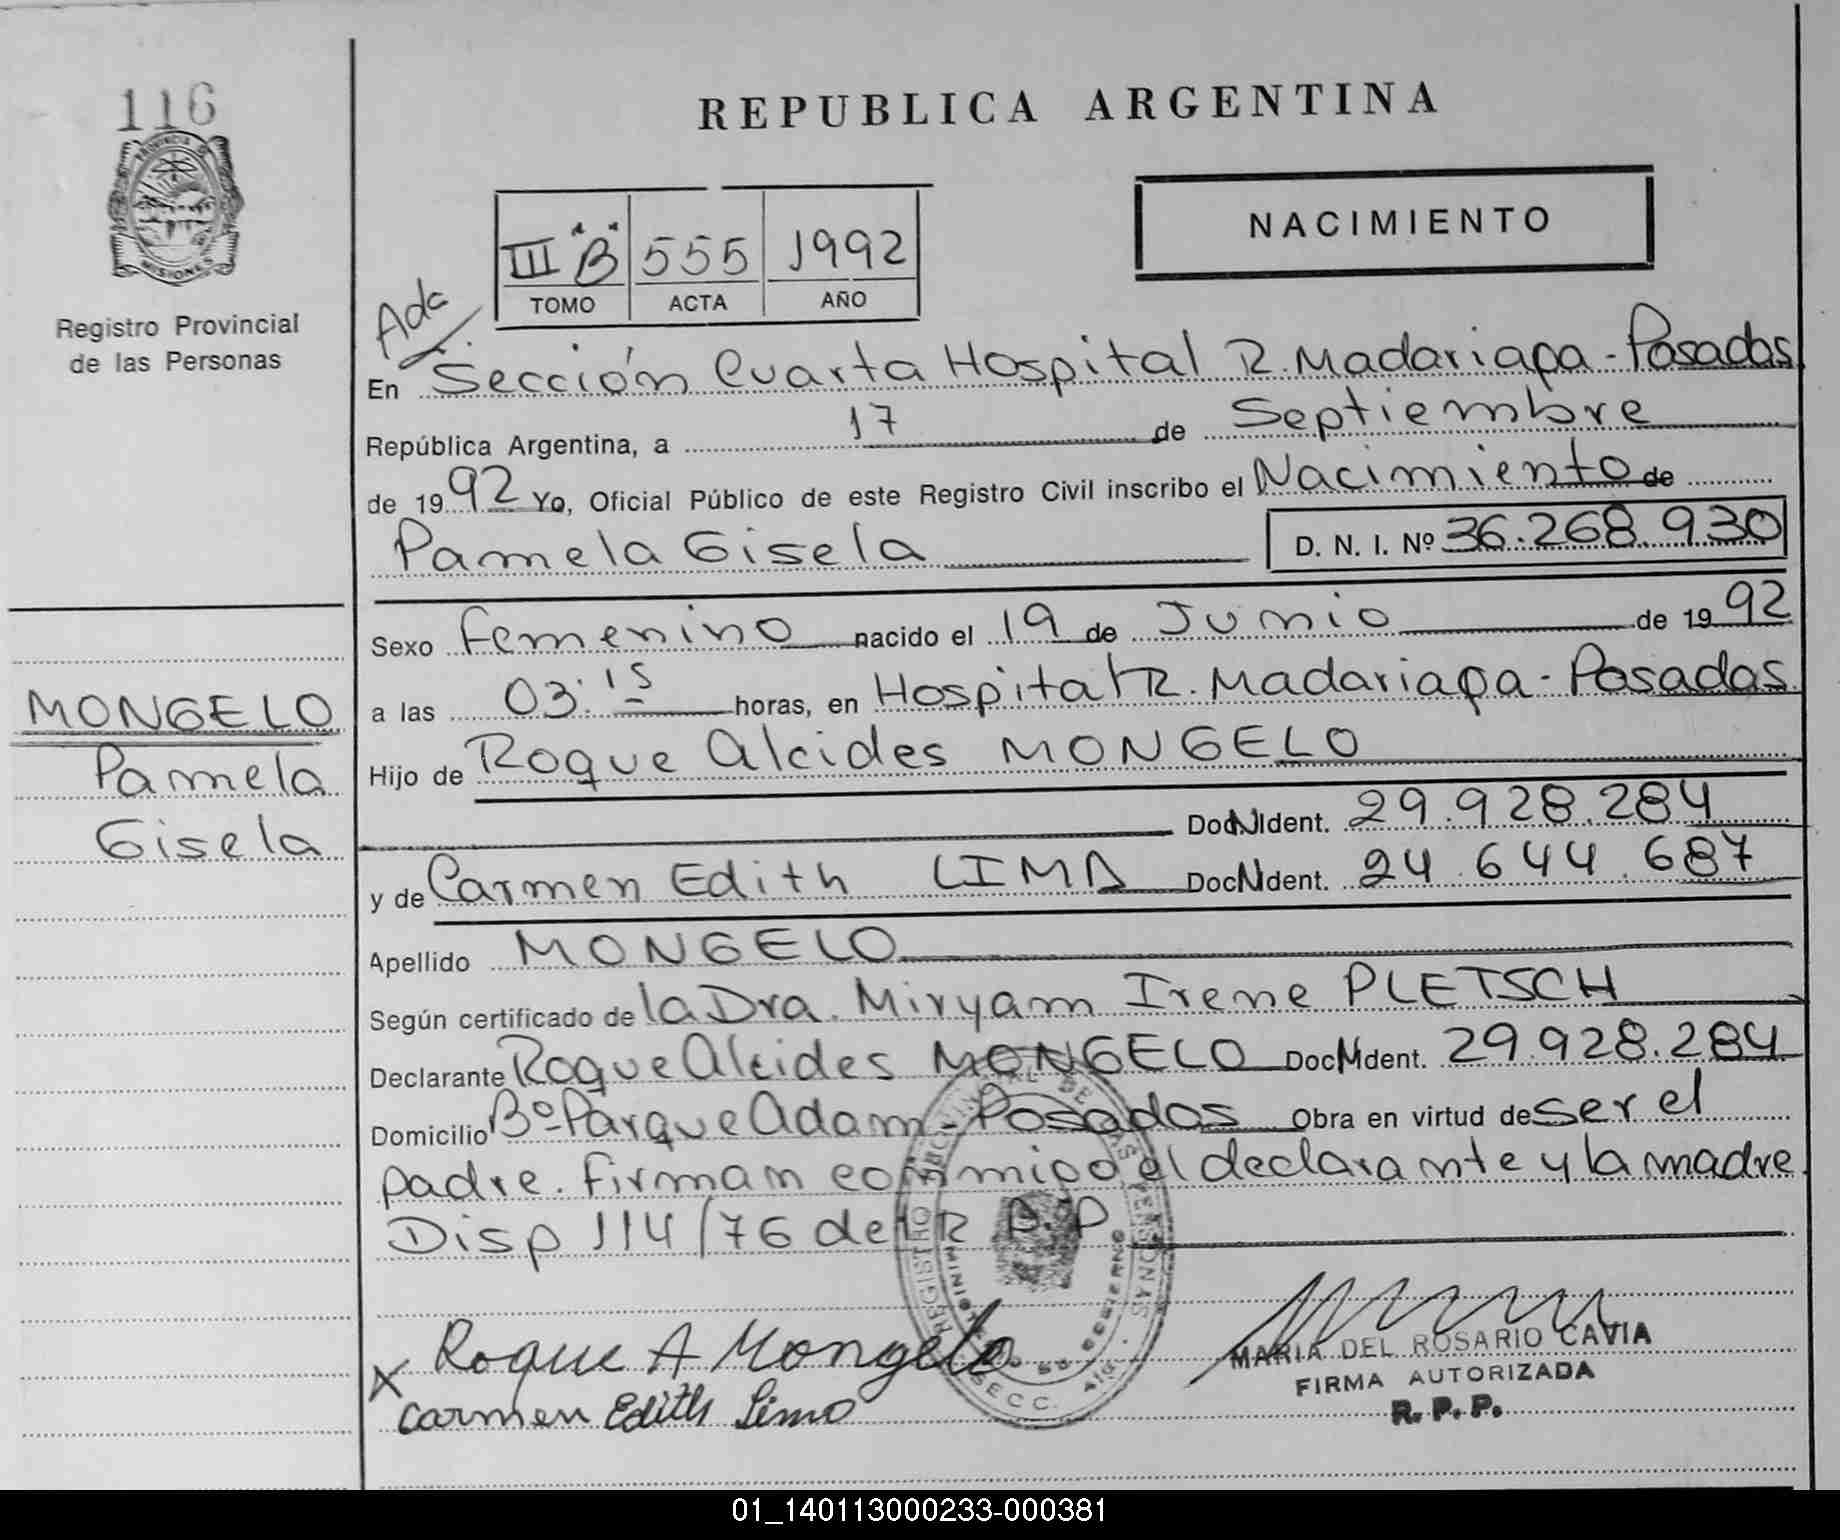 116
PROVINCIA D
MISIONES
Registro Provincial
de las Personas
MONGELO
Pamela
Gisela
REPUBLICA ARGENTINA
NACIMIENTO
III "B" 555 1992
TOMO ACTA AÑO
En Sección Cuarta Hospital R. Madariaga - Posadas
República Argentina, a 17 de Septiembre
de 1992 Yo, Oficial Público de este Registro Civil inscribo el Nacimiento de
Pamela Gisela D. N. I. Nº 36.268.930
Sexo Femenino nacido el 19 de Junio de 1992
a las 03:15 horas, en Hospital R. Madariaga - Posadas
Hijo de Roque Alcides MONGELO
Doc N Ident. 29.928.284
y de Carmen Edith LIMA Doc N Ident. 24.644.687
Apellido MONGELO
Según certificado de la Dra. Miryam Irene PLETSCH
Declarante Roque Alcides MONGELO Doc N Ident. 29.928.284
Domicilio Bº Parque Adam - Posadas Obra en virtud de ser el
padre. Firman conmigo el declarante y la madre.
Disp 114/76 del R. P. P.
REGISTRO PROVINCIAL DE LAS PERSONAS
GOBIERNO
SECC.
Roque A Mongelo
X
Carmen Edith Lima
MARIA DEL ROSARIO CAVIA
FIRMA AUTORIZADA
R. P. P.
01_140113000233-000381